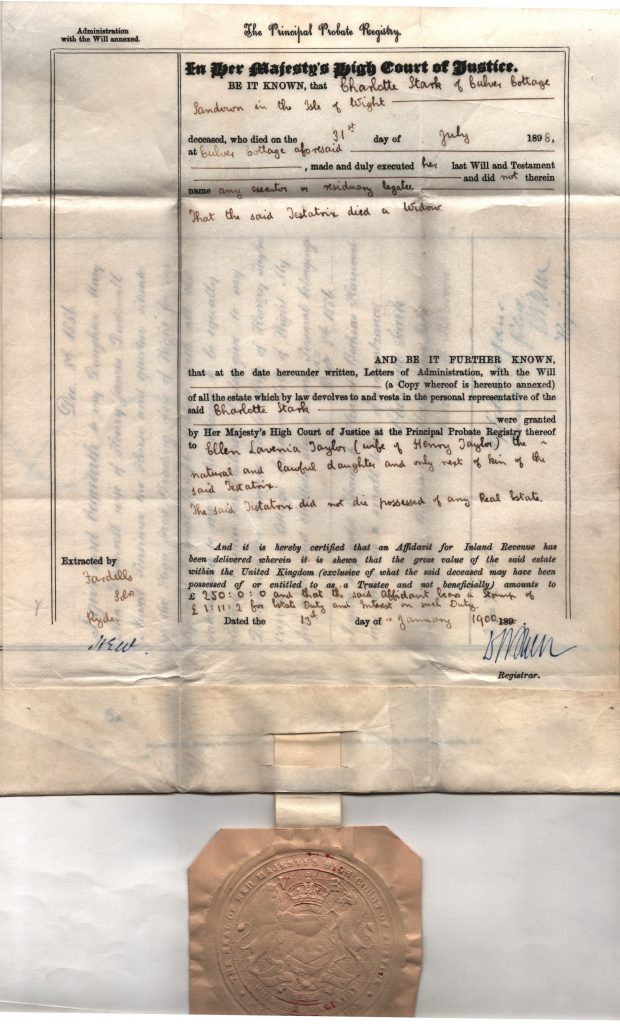 Administration
with the Will annexed.
The Principal Probate Registry.
In Her Majesty's High Court of Justice.
BE IT KNOWN, that Charlotte Stark of Culver Cottage
Sandown in the Isle of Wight
deceased, who died on the 31st day of July 1898,
at Culver Cottage aforesaid
, made and duly executed her last Will and Testament
and did not therein
name any executor or residuary legatee
That the said Testatrix died a Widow.
AND BE IT FURTHER KNOWN,
that at the date hereunder written, Letters of Administration, with the Will
(a Copy whereof is hereunto annexed)
of all the estate which by law devolves to and vests in the personal representative of the
said Charlotte Stark
were granted
by Her Majesty's High Court of Justice at the Principal Probate Registry thereof
to Ellen Lavenia Taylor (wife of Henry Taylor) the
natural and lawful daughter and only next of kin of the
said Testatrix.
The said Testatrix did not die possessed of any Real Estate.
And it is hereby certified that an Affidavit for Inland Revenue has
been delivered wherein it is shewn that the gross value of the said estate
within the United Kingdom (exclusive of what the said deceased may have been
possessed of or entitled to as a Trustee and not beneficially) amounts to
£ 250:0:0 and that the said Affidavit bears a Stamp of
£ 1:11:2 for Estate Duty and Interest on such Duty.
Dated the 13th day of January 1900 189
Extracted by
Fardells
Ryde.
H.E.W.
Registrar.
THE SEAL OF HER MAJESTY'S HIGH COURT OF JUSTICE